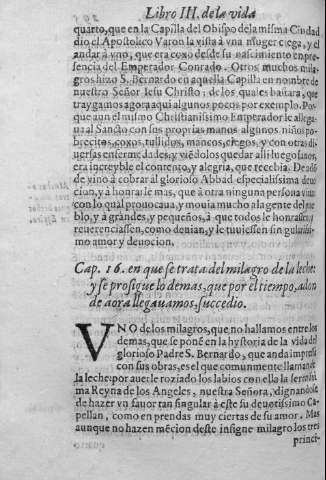 Libro III. de la vida
quarto, que en la Capilla del Obispo de la misma Ciudad
dio el Apostolico Varon la vista à vna muger ciega, y el
andar à vno, que era coxo desde su nascimiento en pre-
sencia del Emperador Conrado. Otros muchos mila-
gros hizo S. Bernardo en aquella Capilla en nombre de
nuestro Señor Iesu Christo: de los quales bastara, que
traygamos agora aqui algunos pocos por exemplo. Por
que aun el mismo Christianissimo Emperador le allega-
ua al Sancto con sus proprias manos algunos niños po-
brecitos, coxos, tullidos, mancos, ciegos, y con otras di-
uersas enfermedades; y viédolos quedar alli luego sanos,
era increyble el contento, y alegria, que recebia. De do
de vino à cobrar al glorioso Abbad especialissima deuo
cion, y à honrarle mas, que à otra ninguna persona viua:
con lo qual prouocaua, y mouia mucho ala gente del pue
blo, y à grándes, y pequeños, à que todos le honrassen, y
reuerenciassen, como denian, y le tuuiessen singularissi-
mo amor y deuocion.
Cap. 16. en que se trata del milagro de la leche:
y se prosigue lo demas, que por el tiempo, adon
de aora llegauamos, succedio.
VNO de los milagros, que no hallamos entre los
demas, que se poné en la hystoria de la vida del
glorioso Padre S. Bernardo, que anda impressa
con sus obras, es el que comunmente llaman de
la leche: por auerle roziado los labios con ella la serenissi
ma Reyna de los Angeles, nuestra Señora, dignandose
de hazer vn fauor tan singular à este su deuotissimo Ca-
pellan, como en prendas muy ciertas de su amor. Mas
aunque no hazen mécion deste insigne milagro los tres
princi-